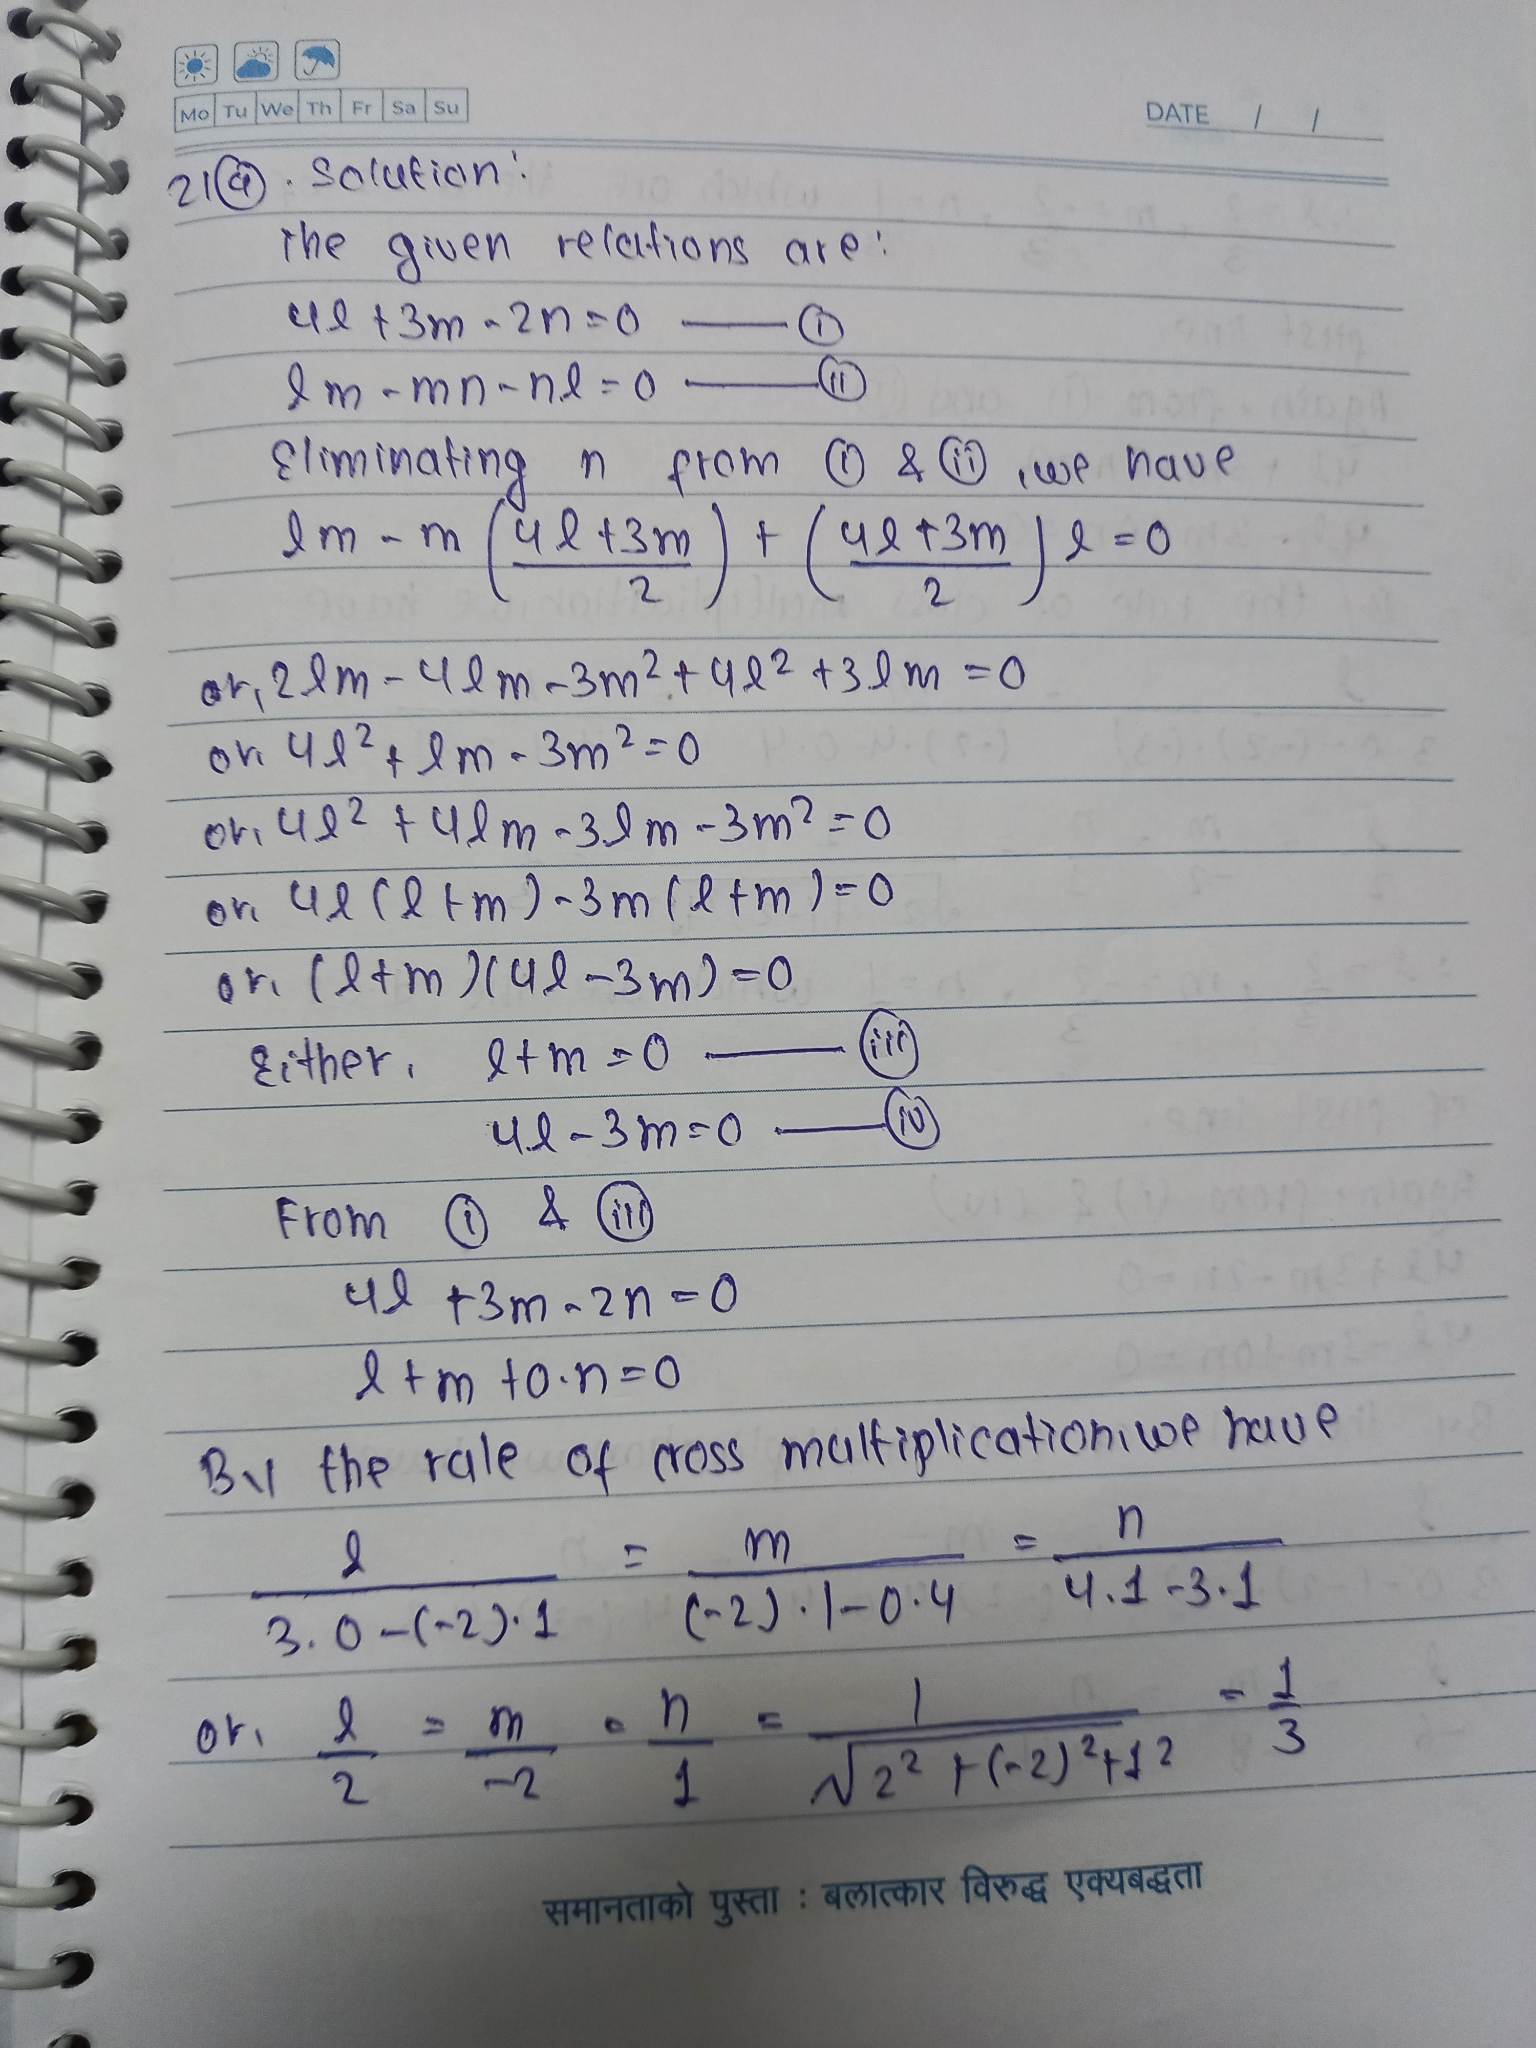 Mo Tu We Th Fr Sa Su
DATE / /
21(a). Solution:
The given relations are:
4l + 3m - 2n = 0 —— (i)
lm - mn - nl = 0 —— (ii)
Eliminating n from (i) & (ii), we have
lm - m((4l + 3m)/2) + ((4l + 3m)/2) l = 0
or, 2lm - 4lm - 3m² + 4l² + 3lm = 0
or, 4l² + lm - 3m² = 0
or, 4l² + 4lm - 3lm - 3m² = 0
or, 4l(l + m) - 3m(l + m) = 0
or, (l + m)(4l - 3m) = 0
Either, l + m = 0 —— (iii)
4l - 3m = 0 —— (iv)
From (i) & (iii)
4l + 3m - 2n = 0
l + m + 0.n = 0
By the rule of cross multiplication, we have
l/(3.0 - (-2).1) = m/((-2).1 - 0.4) = n/(4.1 - 3.1)
or, l/2 = m/-2 = n/1 = 1/√(2² + (-2)² + 1²) = 1/3
समानताको पुस्ता : बलात्कार विरुद्ध एक्यबद्धता